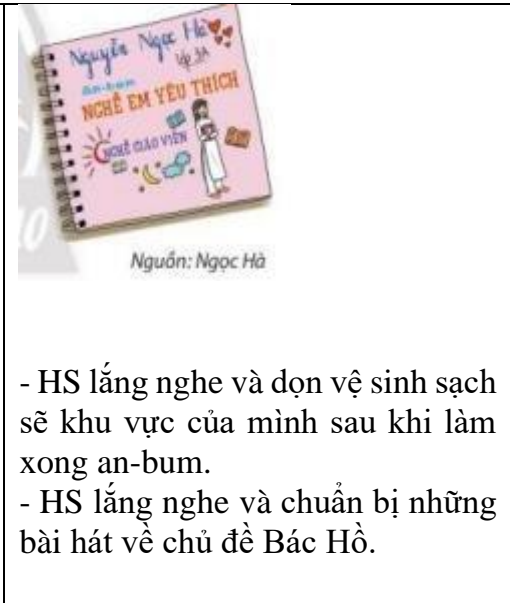 Nguyễn Ngọc Hà
lớp 3A
An-bum
NGHỀ EM YÊU THÍCH
NGHỀ GIÁO VIÊN
10
Nguồn: Ngọc Hà
- HS lắng nghe và dọn vệ sinh sạch
sẽ khu vực của mình sau khi làm
xong an-bum.
- HS lắng nghe và chuẩn bị những
bài hát về chủ đề Bác Hồ.